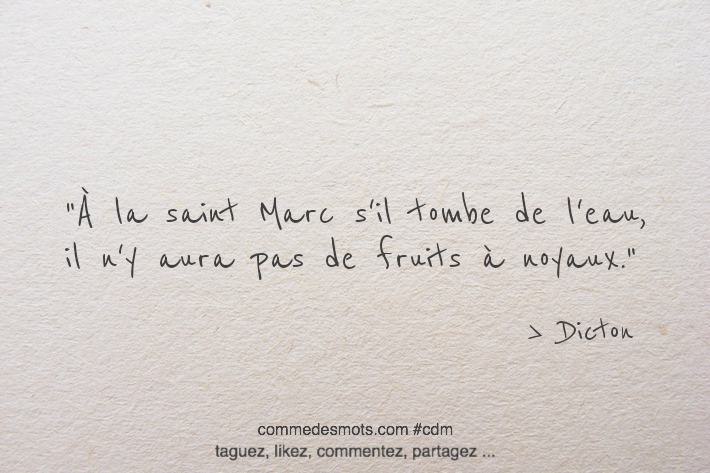 "À la saint Marc s'il tombe de l'eau,
il n'y aura pas de fruits à noyaux."
> Dicton
commedesmots.com #cdm
taguez, likez, commentez, partagez ...